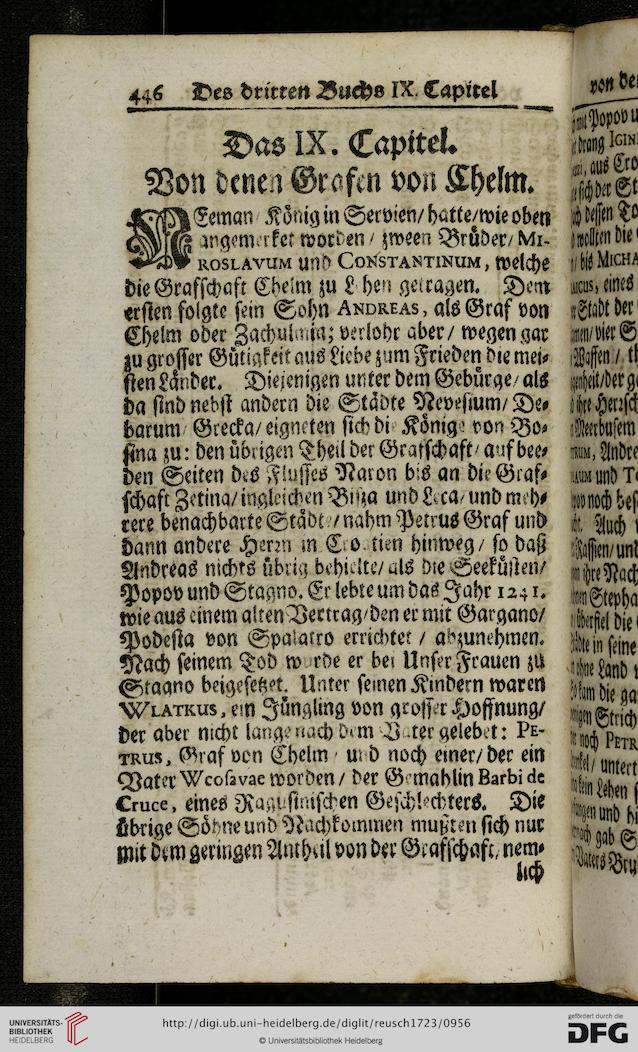 446 Des dritten Buchs IX. Capitel
Das IX. Capitel.
Von denen Grafen von Chelm.
NEeman/ König in Servien/ hatte/ wie oben
angemerket worden/ zween Brüder/ MI-
ROSLAVUM und CONSTANTINUM, welche
die Grafschaft Chelm zu Lehen getragen. Dem
ersten folgte sein Sohn ANDREAS, als Graf von
Chelm oder Zachulmia; verlohr aber/ wegen gar
zu grosser Gütigkeit aus Liebe zum Frieden die mei-
sten Länder. Diejenigen unter dem Gebürge/ als
da sind nebst andern die Städte Nevesium/ De-
barum/ Grecka/ eigneten sich die Könige von Bo-
sina zu: den übrigen Theil der Grafschaft/ auf bee-
den Seiten des Flusses Naron bis an die Graf-
schaft Zetina/ ingleichen und Leca/ und meh-
rere benachbarte Städte/ nahm Petrus Graf und
dann andere Herrn in Croatien hinweg/ so daß
Andreas nichts übrig behielte/ als die Seeküsten/
Popov und Stagno. Er lebte um das Jahr 1241.
wie aus einem alten Vertrag/ den er mit Gargano/
Podesta von Spalatro errichtet/ abzunehmen.
Nach seinem Tod wurde er bei Unser Frauen zu
Stagno beigesetzet. Unter seinen Kindern waren
WLATKUS, ein Jüngling von grosser Hoffnung/
der aber nicht lange nach dem Vater gelebet: PE-
TRUS, Graf von Chelm/ und noch einer/ der ein
Vater Wcosavae worden/ der Gemahlin Barbi de
Cruce, eines Ragusinischen Geschlechters. Die
übrige Söhne und Nachkommen mußten sich nur
mit dem geringen Antheil von der Grafschaft, nem-
lich
von de
Popov u
drang IGIN
, aus Cro
sich der St
dessen To
wollten die
bis MICHA
, eines
Stadt der
/ vier S
Waffen/
/ der g
ihre Herrsch
Meerbusem
, Andre
und T
noch bes
. Auch
Kassien/ und
ihre Nach
Stepha
überfiel die
in seine
ohne Land
kam die ga
Strich
noch PETR
/ untert
kein Lehen
und hi
gab S
Vaters Bru
UNIVERSITÄTS-
BIBLIOTHEK
HEIDELBERG
http://digi.ub.uni-heidelberg.de/diglit/reusch1723/0956
© Universitätsbibliothek Heidelberg
gefördert durch die
DFG